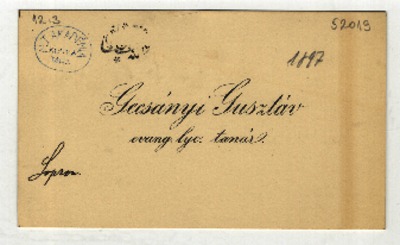 12.3
52013
1897
Gecsányi Gusztáv
evang. lyc. tanár.
Sopron.